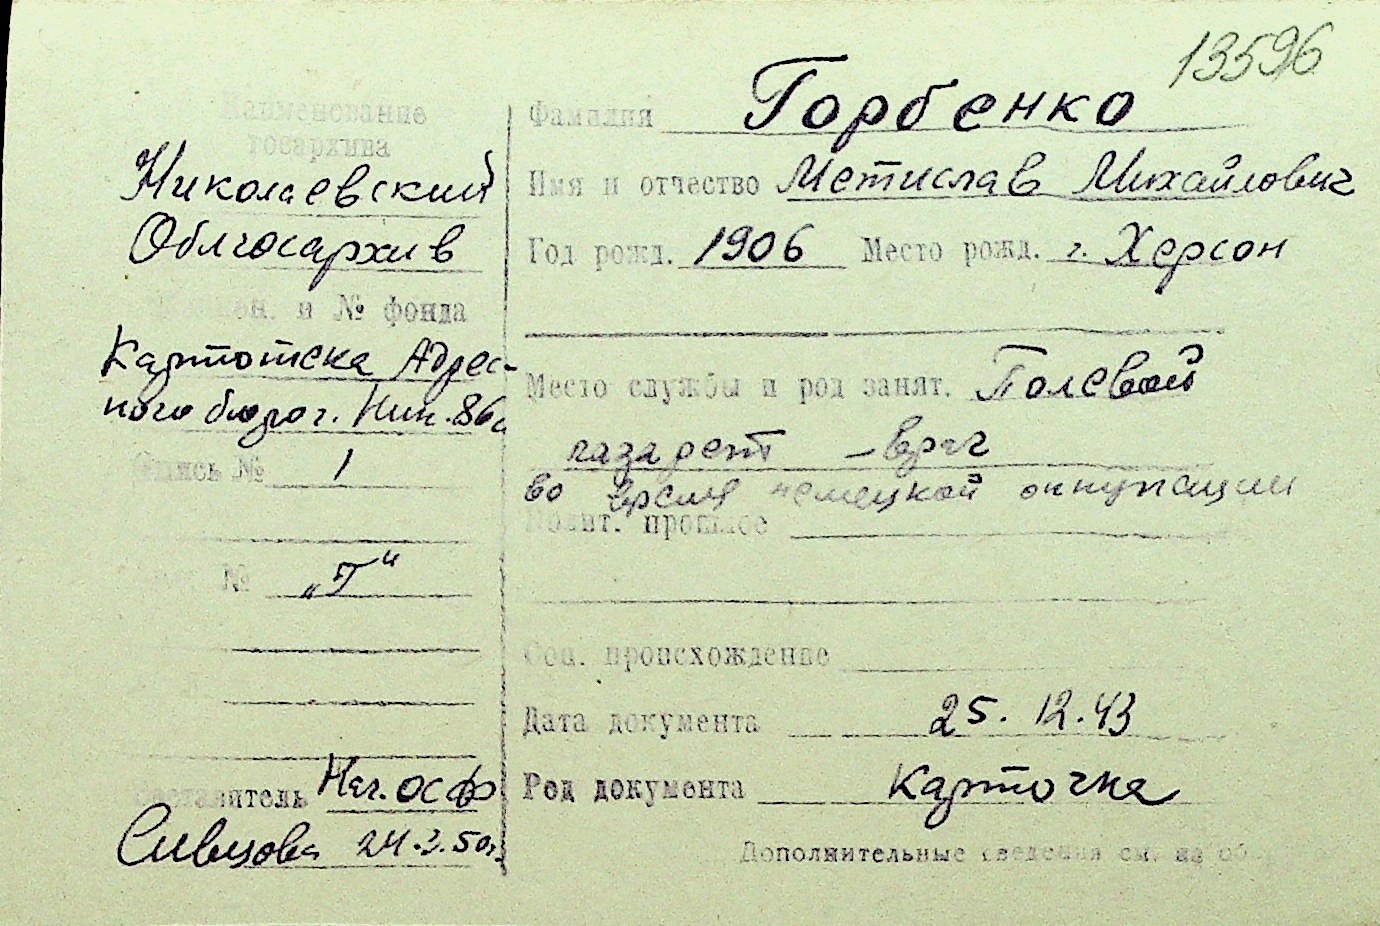 13596
Наименование
госархива
Николаевский
Облгосархив
и № фонда
Картотека Адрес-
ного бюро г. Ник. 86а
Опись № 1
№ „Г“
Составитель Нач. ОСФ
Сивцова 24.2.50г.
Фамилия Горбенко
Имя и отчество Мстислав Михайлович
Год рожд. 1906 Место рожд. г. Херсон
Место службы и род занят. Полевой
лазарет – врач
во время немецкой оккупации
Полит. прошлое
Соц. происхождение
Дата документа 25.12.43
Род документа Карточка
Дополнительные сведения см. на об